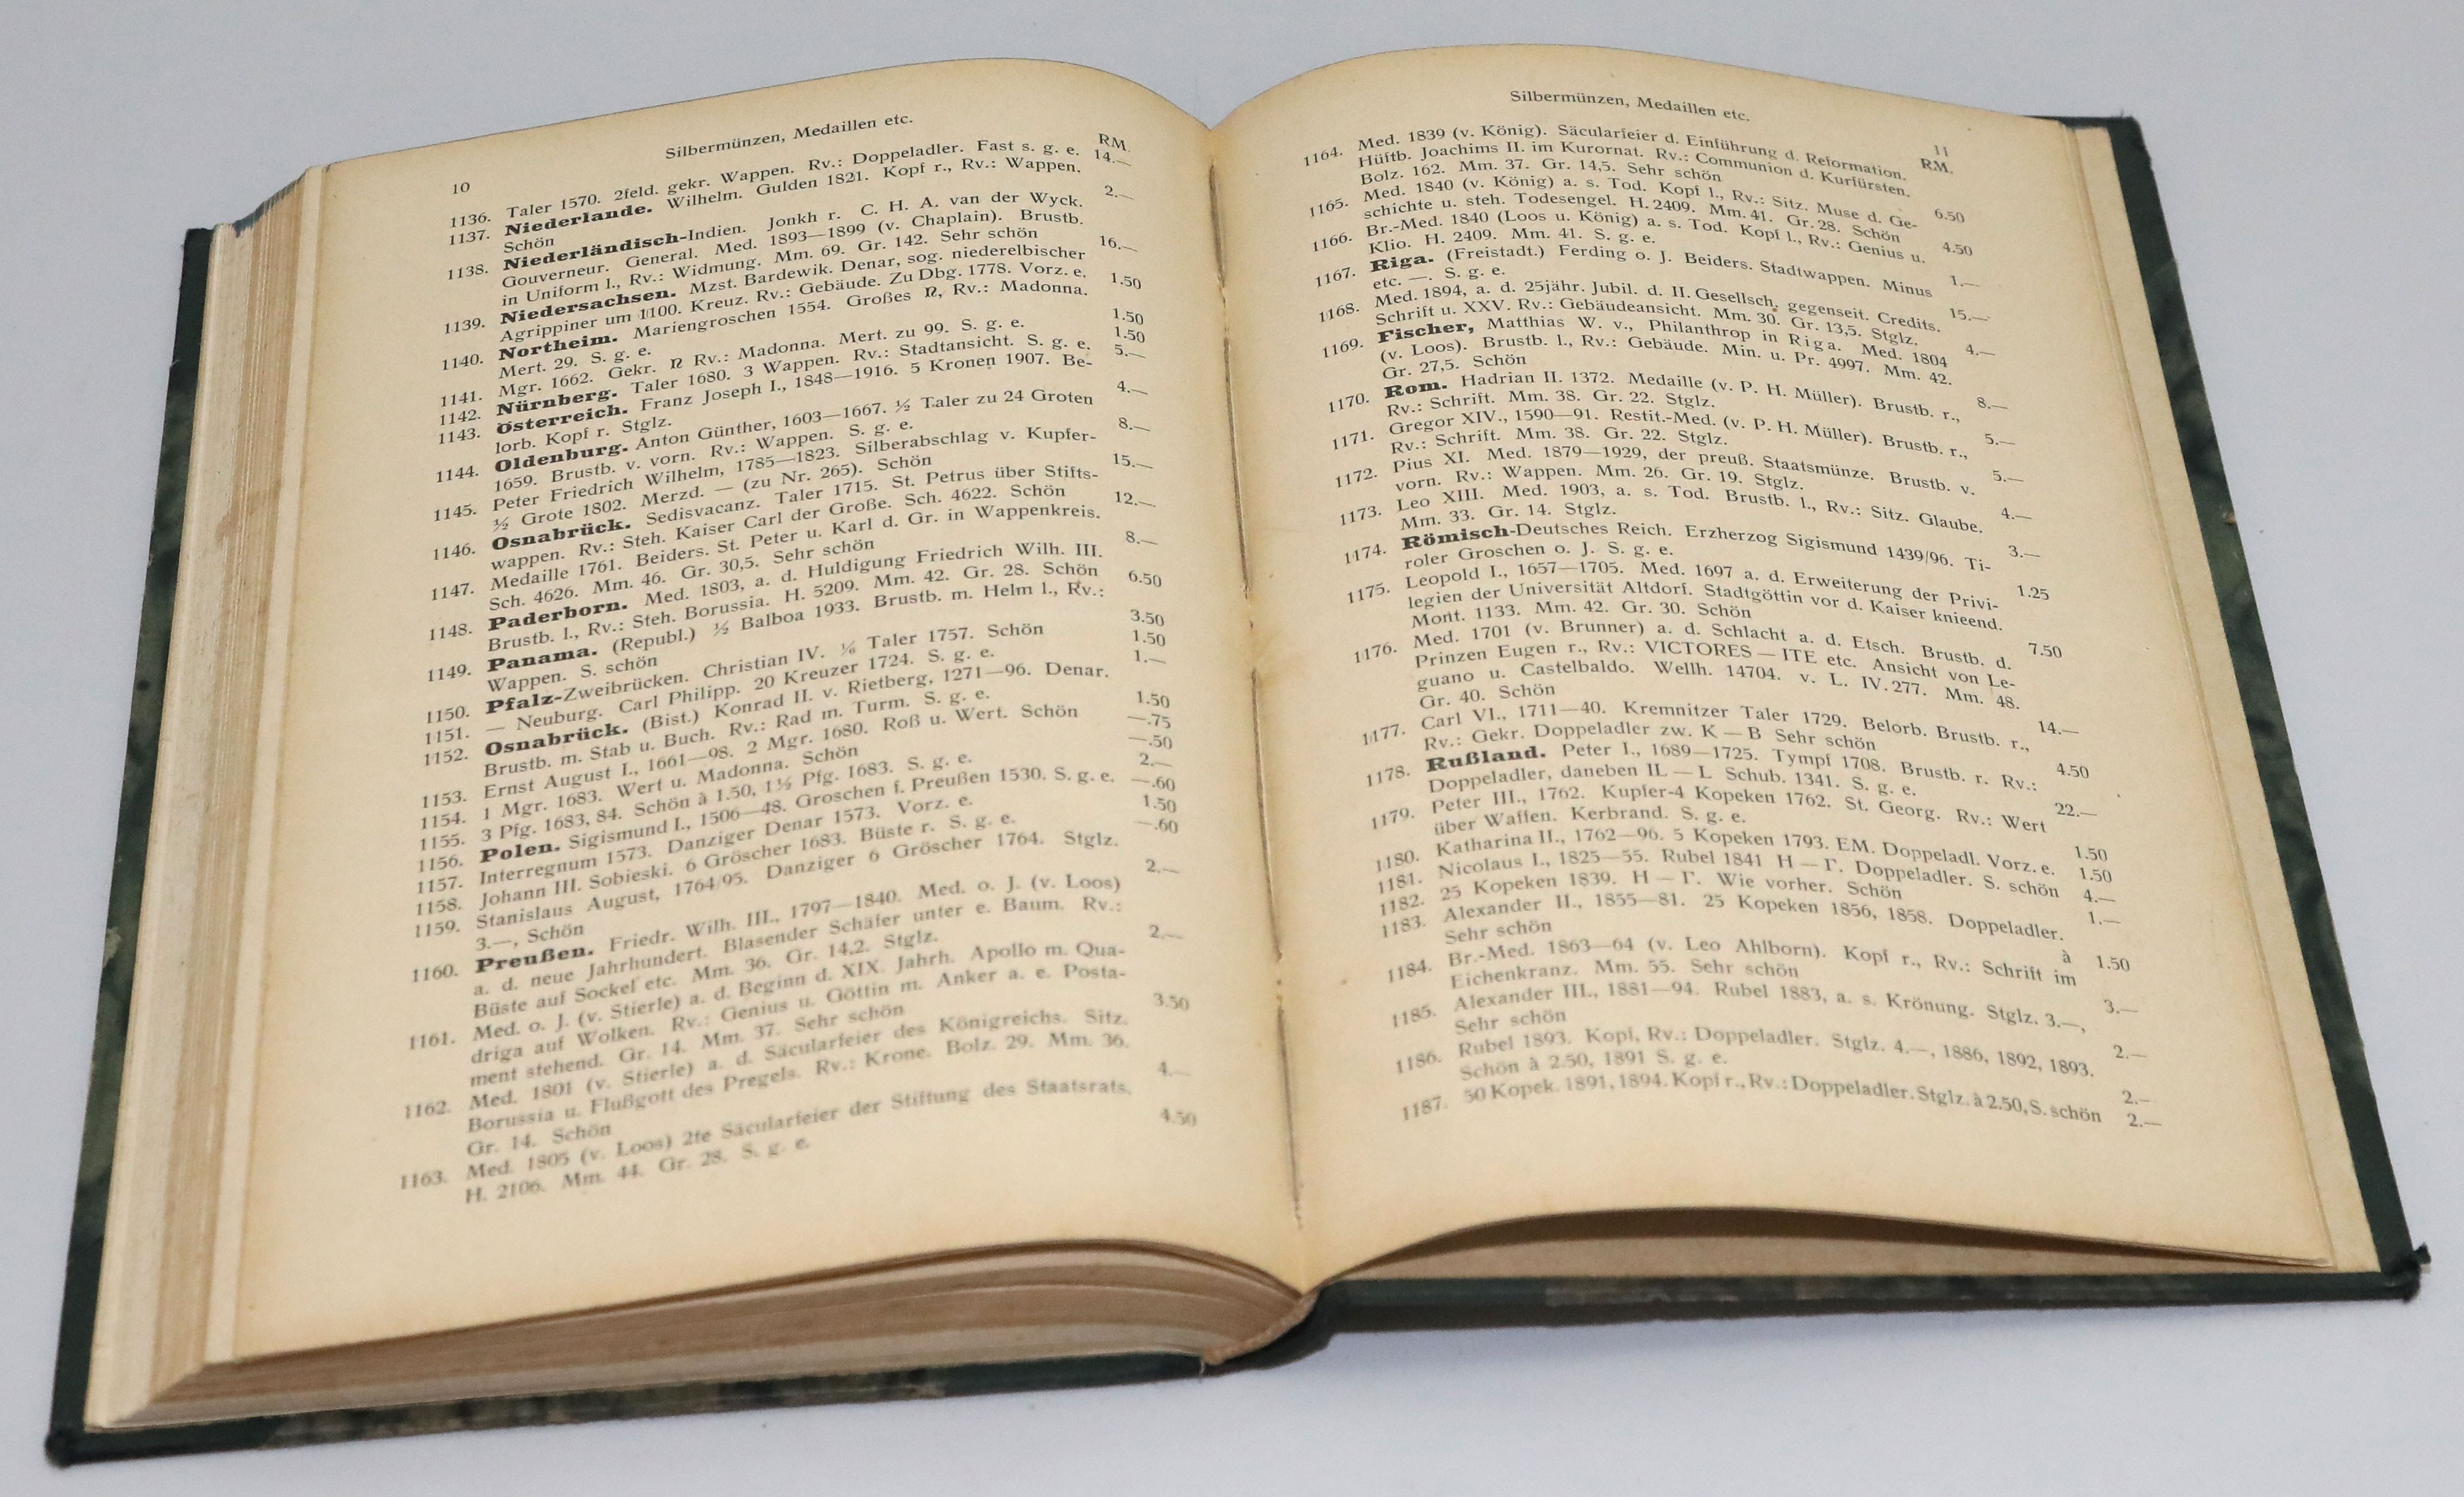 10
Silbermünzen, Medaillen etc.
RM.
1136. Taler 1570. 2feld. gekr. Wappen. Rv.: Doppeladler. Fast s. g. e. 14.—
1137. Niederlande. Wilhelm. Gulden 1821. Kopf r., Rv.: Wappen.
Schön 2.—
1138. Niederländisch-Indien. Jonkh r. C. H. A. van der Wyck.
Gouverneur. General. Med. 1893—1899 (v. Chaplain). Brustb.
in Uniform l., Rv.: Widmung. Mm. 69. Gr. 142. Sehr schön 16.—
1139. Niedersachsen. Mzst. Bardewik. Denar, sog. niederelbischer
Agrippiner um 1100. Kreuz. Rv.: Gebäude. Zu Dbg. 1778. Vorz. e. 1.50
1140. Northeim. Mariengroschen 1554. Großes N, Rv.: Madonna.
Mert. 29. S. g. e. 1.50
1141. Mgr. 1662. Gekr. N Rv.: Madonna. Mert. zu 99. S. g. e. 1.50
1142. Nürnberg. Taler 1680. 3 Wappen. Rv.: Stadtansicht. S. g. e. 5.—
1143. Österreich. Franz Joseph I., 1848—1916. 5 Kronen 1907. Be-
lorb. Kopf r. Stglz. 4.—
1144. Oldenburg. Anton Günther, 1603—1667. ½ Taler zu 24 Groten
1659. Brustb. v. vorn. Rv.: Wappen. S. g. e. 8.—
1145. Peter Friedrich Wilhelm, 1785—1823. Silberabschlag v. Kupfer-
½ Grote 1802. Merzd. — (zu Nr. 265). Schön 15.—
1146. Osnabrück. Sedisvacanz. Taler 1715. St. Petrus über Stifts-
wappen. Rv.: Steh. Kaiser Carl der Große. Sch. 4622. Schön 12.—
1147. Medaille 1761. Beiders. St. Peter u. Karl d. Gr. in Wappenkreis.
Sch. 4626. Mm. 46. Gr. 30,5. Sehr schön 8.—
1148. Paderborn. Med. 1803, a. d. Huldigung Friedrich Wilh. III.
Brustb. l., Rv.: Steh. Borussia. H. 5209. Mm. 42. Gr. 28. Schön 6.50
1149. Panama. (Republ.) ½ Balboa 1933. Brustb. m. Helm l., Rv.:
Wappen. S. schön 3.50
1150. Pfalz-Zweibrücken. Christian IV. ⅙ Taler 1757. Schön 1.50
1151. — Neuburg. Carl Philipp. 20 Kreuzer 1724. S. g. e. 1.—
1152. Osnabrück. (Bist.) Konrad II. v. Rietberg, 1271—96. Denar.
Brustb. m. Stab u. Buch. Rv.: Rad m. Turm. S. g. e. 1.50
1153. Ernst August I., 1661—98. 2 Mgr. 1680. Roß u. Wert. Schön —.75
1154. 1 Mgr. 1683. Wert u. Madonna. Schön —.50
1155. 3 Pfg. 1683, 84. Schön à 1.50, 1½ Pfg. 1683. S. g. e. 2.—
1156. Polen. Sigismund I., 1506—48. Groschen f. Preußen 1530. S. g. e. —.60
1157. Interregnum 1573. Danziger Denar 1573. Vorz. e. 1.50
1158. Johann III. Sobieski. 6 Gröscher 1683. Büste r. S. g. e. —.60
1159. Stanislaus August, 1764/95. Danziger 6 Gröscher 1764. Stglz.
3.—, Schön 2.—
1160. Preußen. Friedr. Wilh. III., 1797—1840. Med. o. J. (v. Loos)
a. d. neue Jahrhundert. Blasender Schäfer unter e. Baum. Rv.:
Büste auf Sockel etc. Mm. 36. Gr. 14,2. Stglz. 2.—
1161. Med. o. J. (v. Stierle) a. d. Beginn d. XIX. Jahrh. Apollo m. Qua-
driga auf Wolken. Rv.: Genius u. Göttin m. Anker a. e. Posta-
ment stehend. Gr. 14. Mm. 37. Sehr schön 3.50
1162. Med. 1801 (v. Stierle) a. d. Säcularfeier des Königreichs. Sitz.
Borussia u. Flußgott des Pregels. Rv.: Krone. Bolz. 29. Mm. 36.
Gr. 14. Schön 4.—
1163. Med. 1805 (v. Loos) 2te Säcularfeier der Stiftung des Staatsrats.
H. 2106. Mm. 44. Gr. 28. S. g. e. 4.50
Silbermünzen, Medaillen etc.
11
RM.
1164. Med. 1839 (v. König). Säcularfeier d. Einführung d. Reformation.
Hüftb. Joachims II. im Kurornat. Rv.: Communion d. Kurfürsten.
Bolz. 162. Mm. 37. Gr. 14,5. Sehr schön 6.50
1165. Med. 1840 (v. König) a. s. Tod. Kopf l., Rv.: Sitz. Muse d. Ge-
schichte u. steh. Todesengel. H. 2409. Mm. 41. Gr. 28. Schön 4.50
1166. Br.-Med. 1840 (Loos u. König) a. s. Tod. Kopf l., Rv.: Genius u.
Klio. H. 2409. Mm. 41. S. g. e. 1.—
1167. Riga. (Freistadt.) Ferding o. J. Beiders. Stadtwappen. Minus
etc. —. S. g. e. 15.—
1168. Med. 1894, a. d. 25jähr. Jubil. d. II. Gesellsch. gegenseit. Credits.
Schrift u. XXV. Rv.: Gebäudeansicht. Mm. 30. Gr. 13,5. Stglz. 4.—
1169. Fischer, Matthias W. v., Philanthrop in Riga. Med. 1804
(v. Loos). Brustb. l., Rv.: Gebäude. Min. u. Pr. 4997. Mm. 42.
Gr. 27,5. Schön 8.—
1170. Rom. Hadrian II. 1372. Medaille (v. P. H. Müller). Brustb. r.,
Rv.: Schrift. Mm. 38. Gr. 22. Stglz. 5.—
1171. Gregor XIV., 1590—91. Restit.-Med. (v. P. H. Müller). Brustb. r.,
Rv.: Schrift. Mm. 38. Gr. 22. Stglz. 5.—
1172. Pius XI. Med. 1879—1929, der preuß. Staatsmünze. Brustb. v.
vorn. Rv.: Wappen. Mm. 26. Gr. 19. Stglz. 4.—
1173. Leo XIII. Med. 1903, a. s. Tod. Brustb. l., Rv.: Sitz. Glaube.
Mm. 33. Gr. 14. Stglz. 3.—
1174. Römisch-Deutsches Reich. Erzherzog Sigismund 1439/96. Ti-
roler Groschen o. J. S. g. e. 1.25
1175. Leopold I., 1657—1705. Med. 1697 a. d. Erweiterung der Privi-
legien der Universität Altdorf. Stadtgöttin vor d. Kaiser knieend.
Mont. 1133. Mm. 42. Gr. 30. Schön 7.50
1176. Med. 1701 (v. Brunner) a. d. Schlacht a. d. Etsch. Brustb. d.
Prinzen Eugen r., Rv.: VICTORES — ITE etc. Ansicht von Le-
guano u. Castelbaldo. Wellh. 14704. v. L. IV. 277. Mm. 48.
Gr. 40. Schön 14.—
1177. Carl VI., 1711—40. Kremnitzer Taler 1729. Belorb. Brustb. r.,
Rv.: Gekr. Doppeladler zw. K — B Sehr schön 4.50
1178. Rußland. Peter I., 1689—1725. Tympf 1708. Brustb. r. Rv.:
Doppeladler, daneben IL — L Schub. 1341. S. g. e. 22.—
1179. Peter III., 1762. Kupfer-4 Kopeken 1762. St. Georg. Rv.: Wert
über Waffen. Kerbrand. S. g. e. 1.50
1180. Katharina II., 1762—96. 5 Kopeken 1793. EM. Doppeladl. Vorz. e. 1.50
1181. Nicolaus I., 1825—55. Rubel 1841 H — Γ. Doppeladler. S. schön 4.—
1182. 25 Kopeken 1839. H — Γ. Wie vorher. Schön 1.—
1183. Alexander II., 1855—81. 25 Kopeken 1856, 1858. Doppeladler.
Sehr schön à 1.50
1184. Br.-Med. 1863—64 (v. Leo Ahlborn). Kopf r., Rv.: Schrift im
Eichenkranz. Mm. 55. Sehr schön 3.—
1185. Alexander III., 1881—94. Rubel 1883, a. s. Krönung. Stglz. 3.—,
Sehr schön 2.—
1186. Rubel 1893. Kopf, Rv.: Doppeladler. Stglz. 4.—, 1886, 1892, 1893.
Schön à 2.50, 1891 S. g. e. 2.—
1187. 50 Kopek. 1891, 1894. Kopf r., Rv.: Doppeladler. Stglz. à 2.50, S. schön 2.—